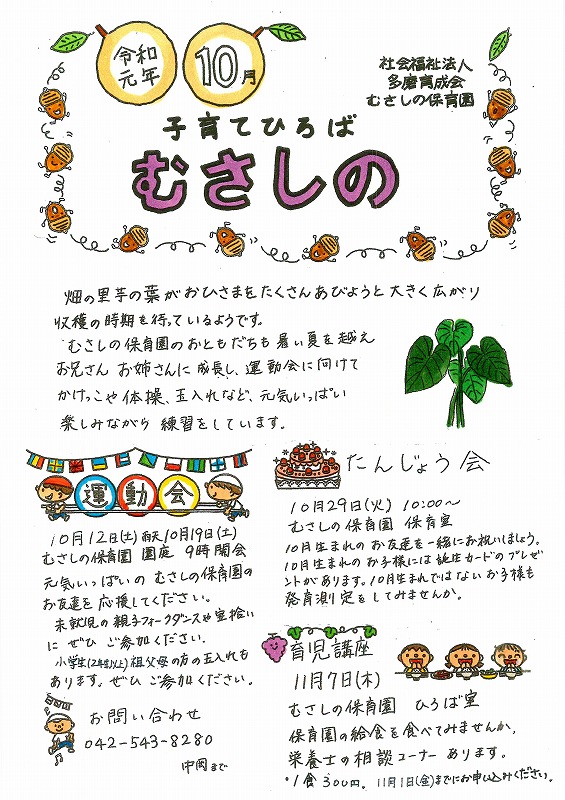 令和
元年
10月
社会福祉法人
多磨育成会
むさしの保育園
子育てひろば
むさしの
畑の里芋の葉がおひさまをたくさんあびようと大きく広がり
収穫の時期を待っているようです。
むさしの保育園のおともだちも暑い夏を越え
お兄さんお姉さんに成長し、運動会に向けて
かけっこや体操、玉入れなど、元気いっぱい
楽しみながら練習をしています。
運動会
10月12日(土)雨天10月19日(土)
むさしの保育園 園庭 9時開会
元気いっぱいのむさしの保育園の
お友達を応援してください。
未就児の親子フォークダンスや宝拾い
にぜひご参加ください。
小学生(2年生以上)祖父母の方の玉入れも
あります。ぜひご参加ください。
お問い合わせ
042-543-8280
中岡まで
たんじょう会
10月29日(火) 10:00~
むさしの保育園 保育室
10月生まれのお友達を一緒にお祝いしましょう。
10月生まれのお子様には誕生カードのプレゼ
ントがあります。10月生まれではないお子様も
発育測定をしてみませんか。
育児講座
11月7日(木)
むさしの保育園 ひろば室
保育園の給食を食べてみませんか。
栄養士の相談コーナーあります。
・1食300円。11月1日(金)までにお申込みください。